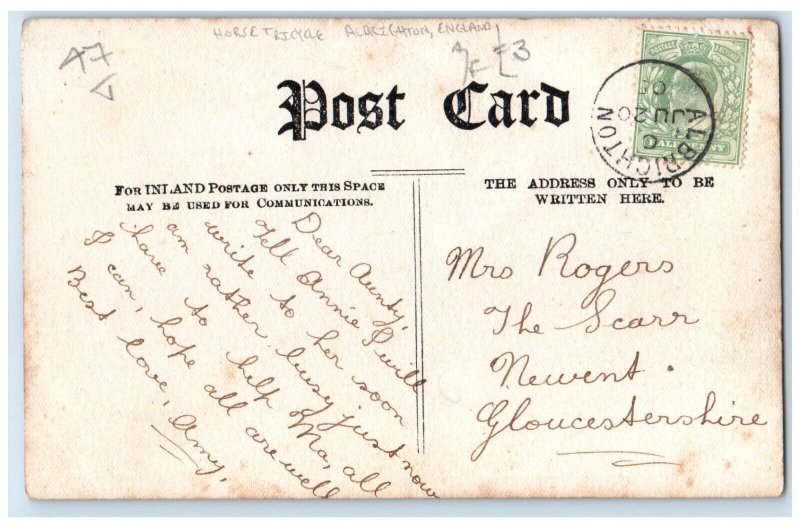 HORSE TRICYCLE ALBRIGHTON, ENGLAND
A7
£3
Post Card
FOR INLAND POSTAGE ONLY THIS SPACE
MAY BE USED FOR COMMUNICATIONS.
THE ADDRESS ONLY TO BE
WRITTEN HERE.
POSTAGE
HALFPENNY
ALBRIGHTON
C
JU 20
05
Dear Aunty,
Tell Annie I will
write to her soon
am rather busy just now
have to help Ma, all
I can, hope all are well
Best love, Amy,
Mrs Rogers
The Scarr
Newent.
Gloucestershire